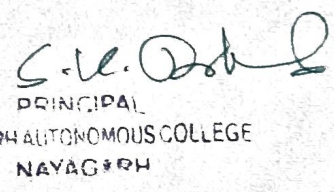 S.K.
PRINCIPAL
AUTONOMOUS COLLEGE
NAYAGARH